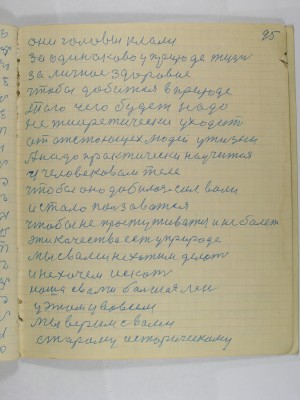 95
они головы клали
за одинаково у природе жизн
за личное здоровие
чтобы добится в природе
того чего будет надо
не теоретически уходит
от отстающех людей у жизни
А надо практически научится
у человековам теле
чтобы оно добилося сил вами
и стало ползоватся
чтобы не простуживатся и не болет
эти качества ест у природе
мы с вами не хотим делат
и не хочем искат
наша с вами болшая лен
у этом у во всем
мы верим с вами
старому историческому